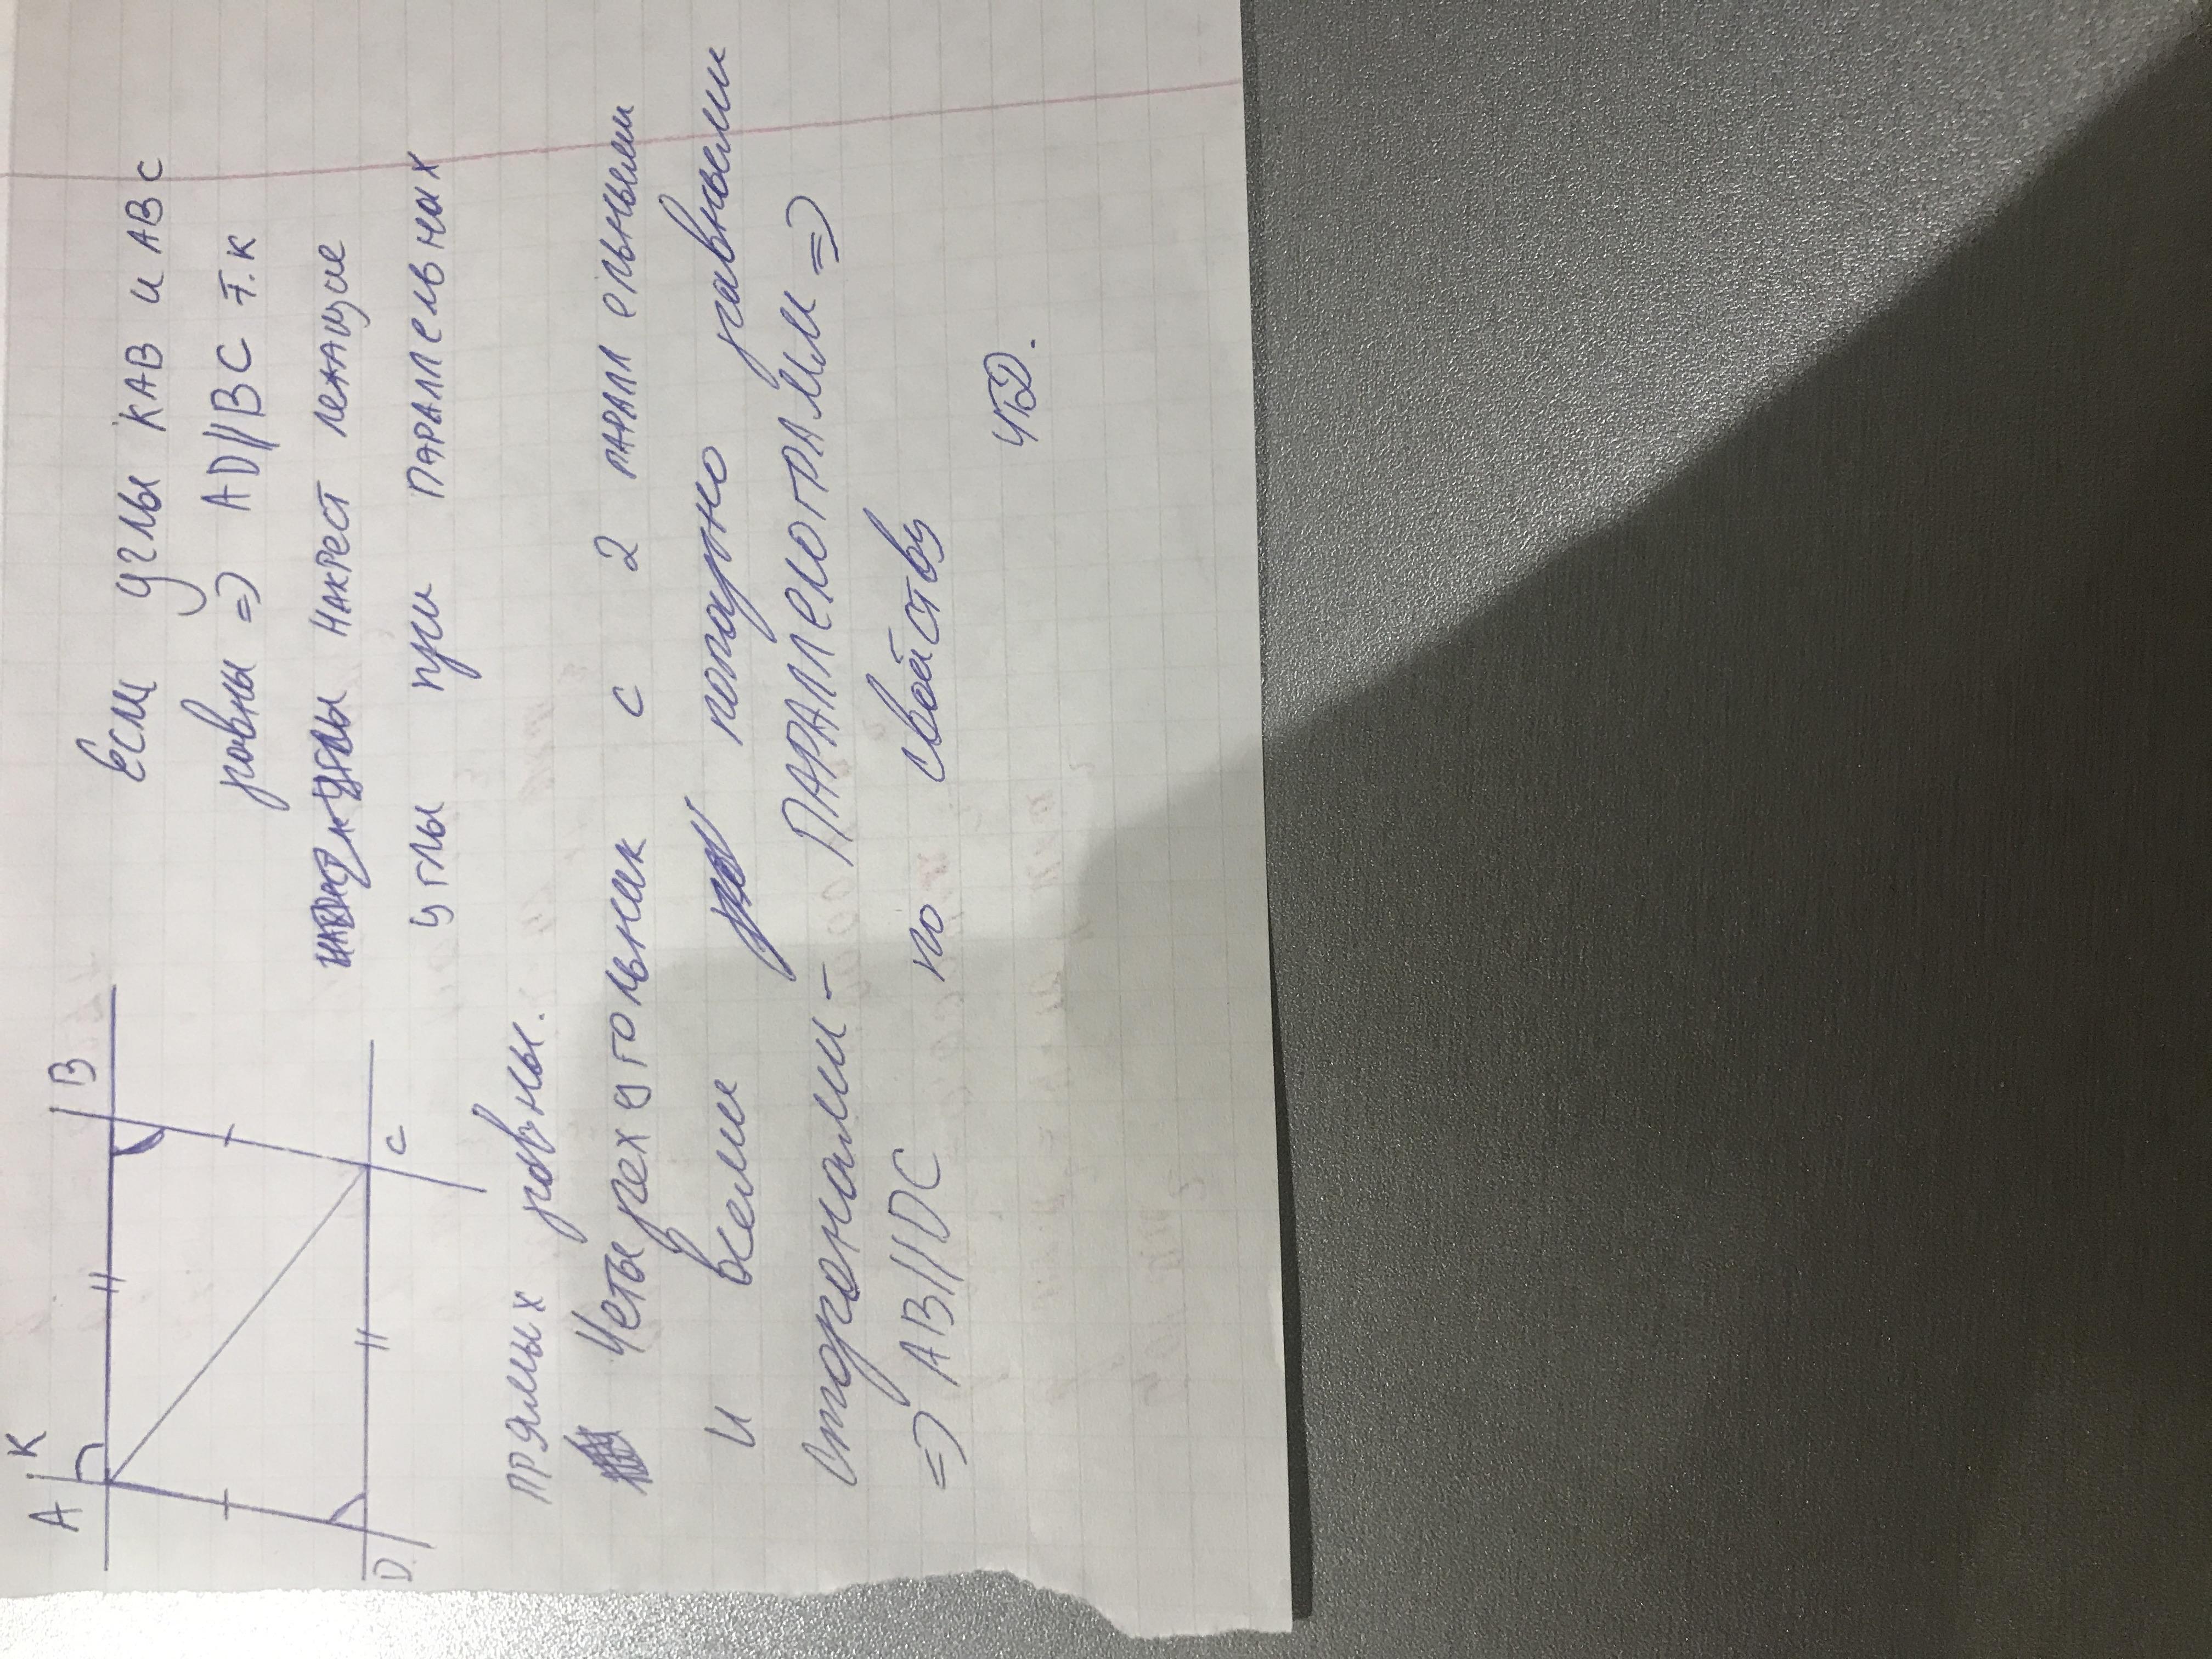 A K B
D C
Если углы KAB и ABC
равны => AD||BC т.к
накрест лежащие
углы при параллельных
прямых равны.
Четырехугольник с 2 паралельными
и всеми попарно равными
сторонами - параллелограмм =>
=> AB||DC по свойству
чтд.